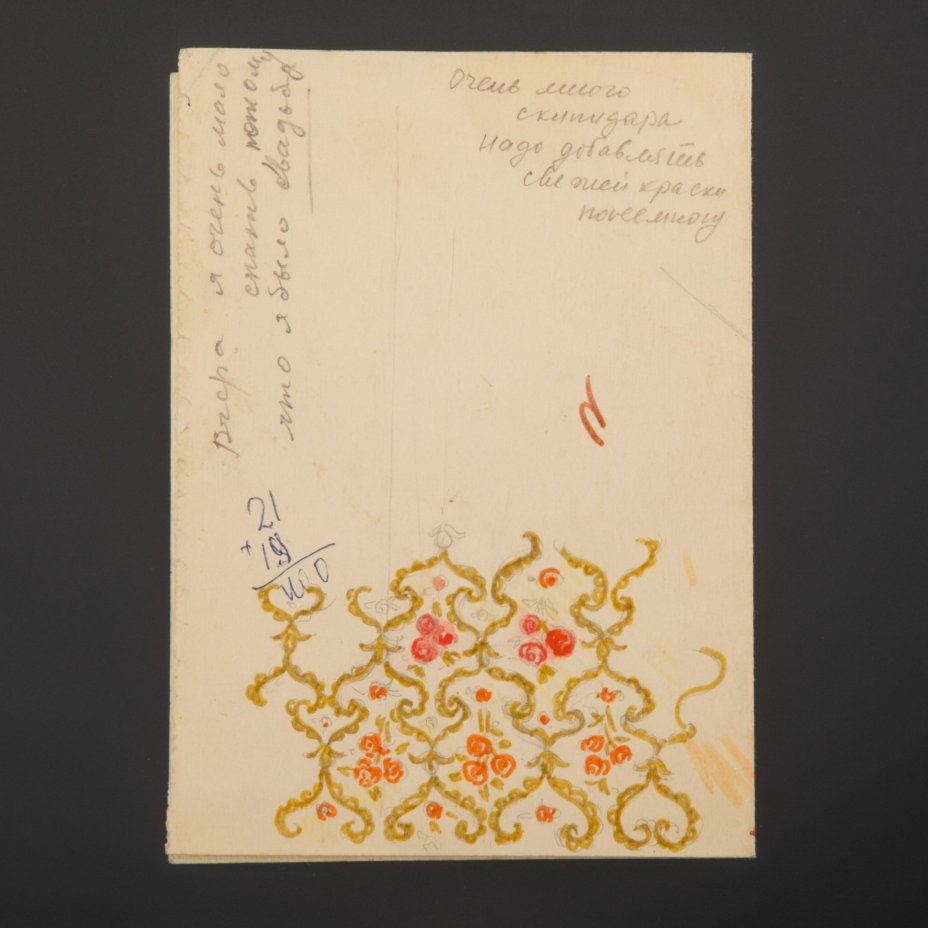 Очень много
скипидара
надо добавлять
свежей краски
понемногу
Вчера я очень мало
спать потому
что я было свадьбу
21
+